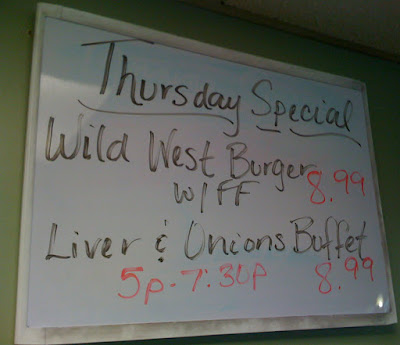 Thursday Special
Wild West Burger
w/FF 8.99
Liver & Onions Buffet
5p-7:30p 8.99